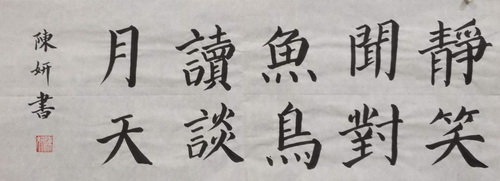 靜笑
聞對
魚鳥
讀談
月天
陳妍書